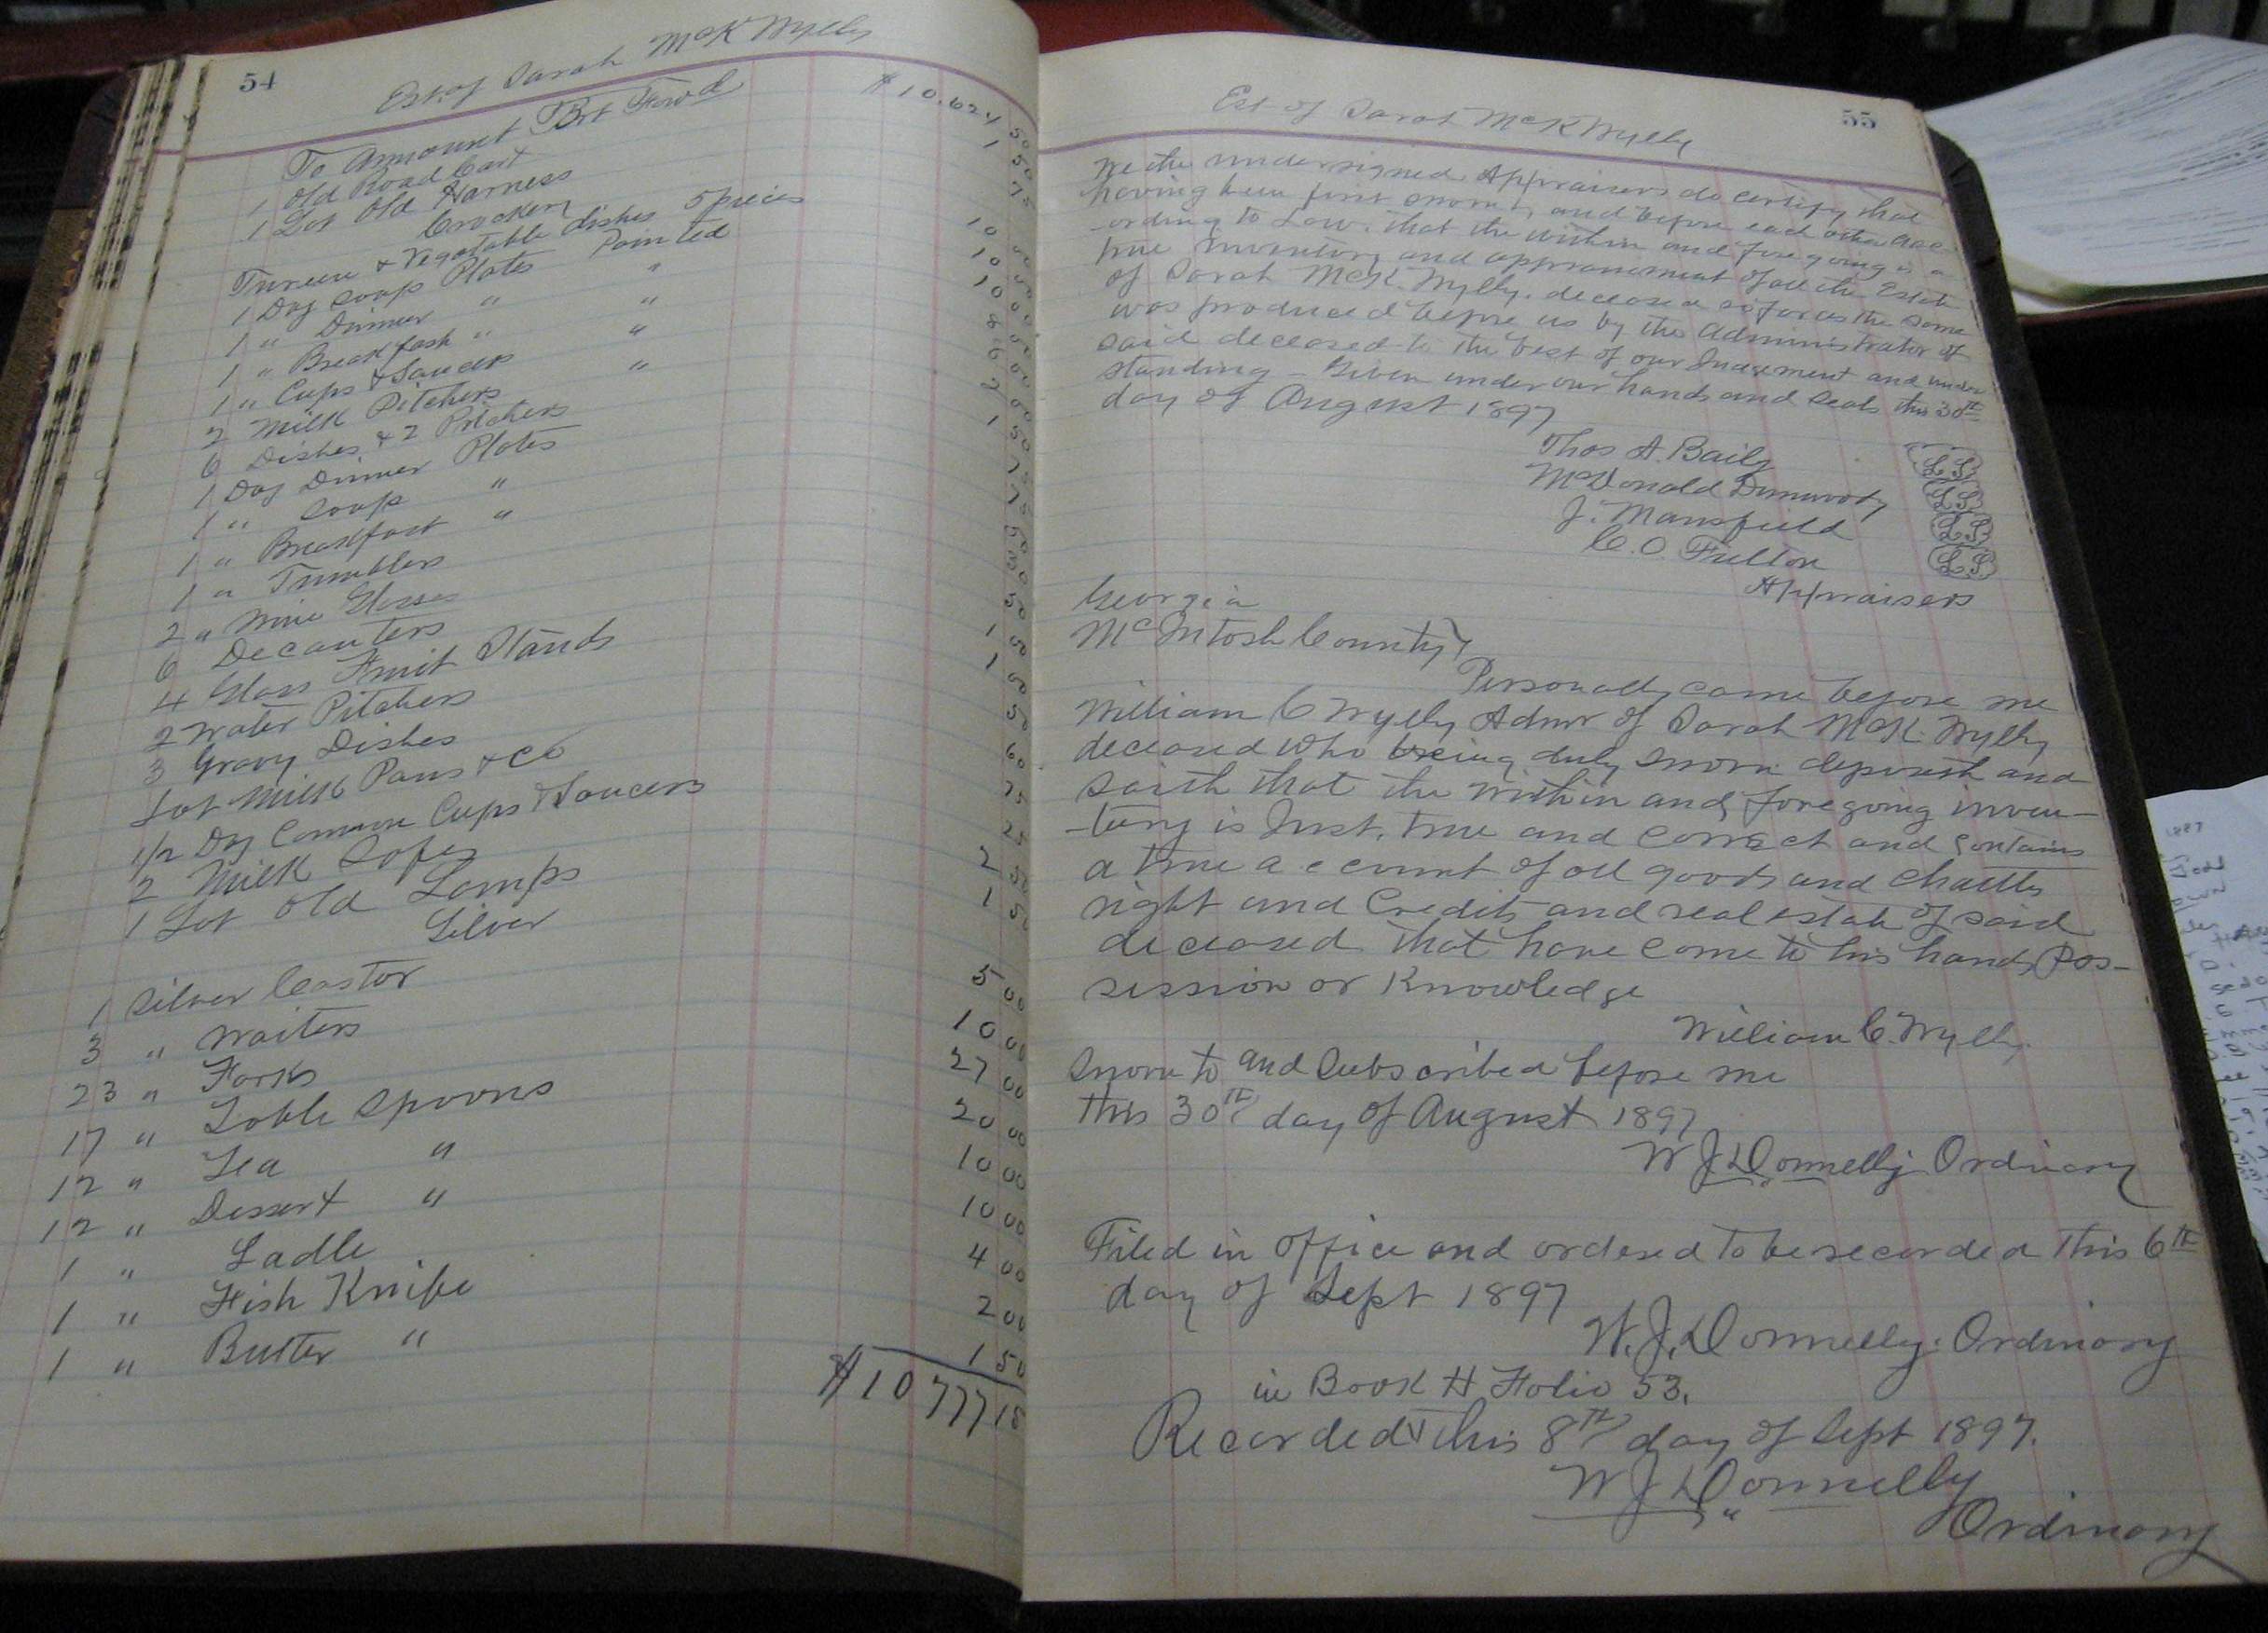 54
Est. of Sarah McK Wylly
To Amount Brt Forwd $10.624 50
1 Old Road Cart 1 50
1 Lot Old Harness 75
Crockery
Tureen & Vegatable dishes 5 pieces 10 00
1 Doz Soup Plates Painted 10 00
1 " Dinner " " 10 00
1 " Breakfash " " 8 00
1 " Cups & Saucers " 6 00
2 Milk Pitchers " 2 00
6 Dishes & 2 Pitchers 1 50
1 Doz Dinner Plates 75
1 " Soup " 75
1 " Breakfast " 50
1 " Tumblers 50
2 " Wine Glasses 50
6 Decanters 1 00
4 Glass Fruit Stands 1 00
2 Water Pitchers 50
3 Gravy Dishes 60
Lot Milk Pans & Co 75
1/2 Doz Common Cups & Saucers 25
2 Milk Safes 2 50
1 Lot Old Lamps 1 50
Silver
1 Silver Castor 5 00
3 " Waiters 10 00
23 " Forks 27 00
17 " Table Spoons 20 00
12 " Tea " 10 00
12 " Dessert " 10 00
1 " Ladle 4 00
1 " Fish Knife 2 00
1 " Butter " 1 50
$10 777 15
Est of Sarah McK Wylly
55
We the undersigned Appraisers do certify that
having been first sworn, and before each other acc
-ording to Law. that the within and foregoing is a
true inventory and appraisement of all the Estate
of Sarah McK. Wylly. deceased so far as the same
was produced before us by the Administrator of
said deceased to the best of our Judgment and under
standing - Given under our hands and seals this 30th
day of August 1897
Thos A. Baily L.S.
McDonald Dunwoody L.S.
J. Mansfield L.S.
C. O. Fulton L.S.
Appraisers
Georgia
McIntosh County }
Personally came before me
William C Wylly Admr of Sarah McK. Wylly
deceased who being duly sworn deposeth and
saith that the within and foregoing inven-
-tory is Just, true and correct and contains
a true account of all goods and chattles
right and Credits and real estate of said
deceased that have come to his hands, Pos-
session or Knowledge
William C. Wylly.
Sworn to and Subscribed before me
this 30th day of August 1897
W J Donnelly Ordinary
Filed in office and ordered to be recorded this 6th
day of Sept 1897
W. J. Donnelly. Ordinary
in Book H Folio 53.
Recorded this 8th day of Sept 1897.
W J Donnelly
Ordinary